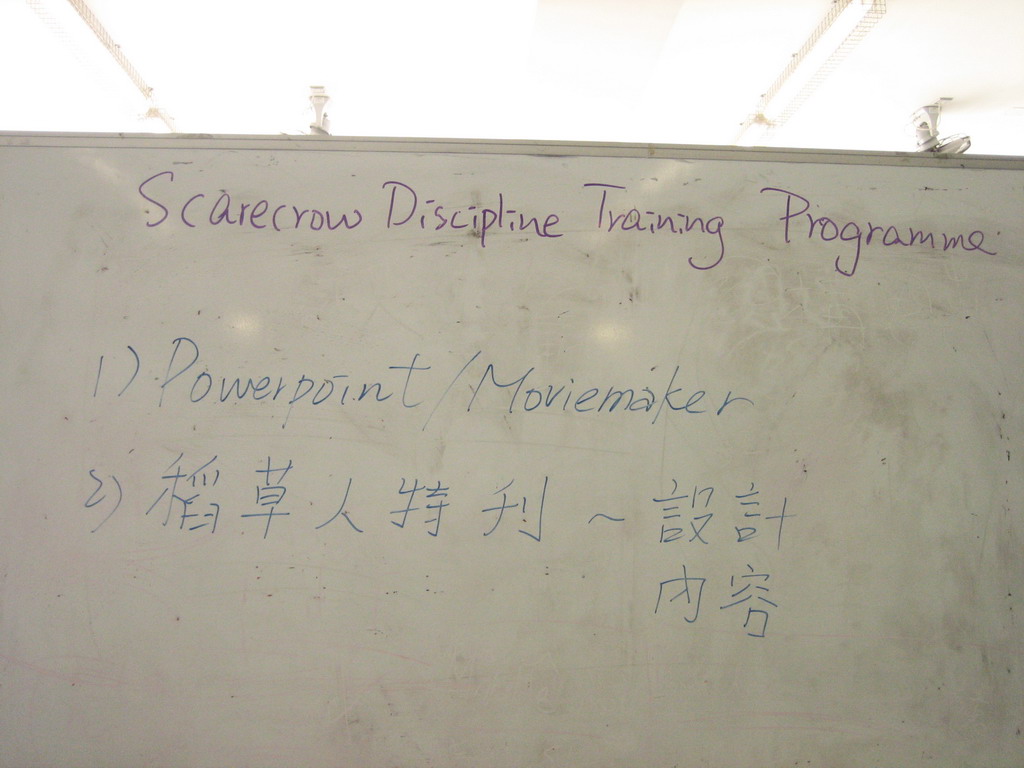 Scarecrow Discipline Training Programme
1) Powerpoint/Moviemaker
2) 稻草人特刊 ~ 設計
內容